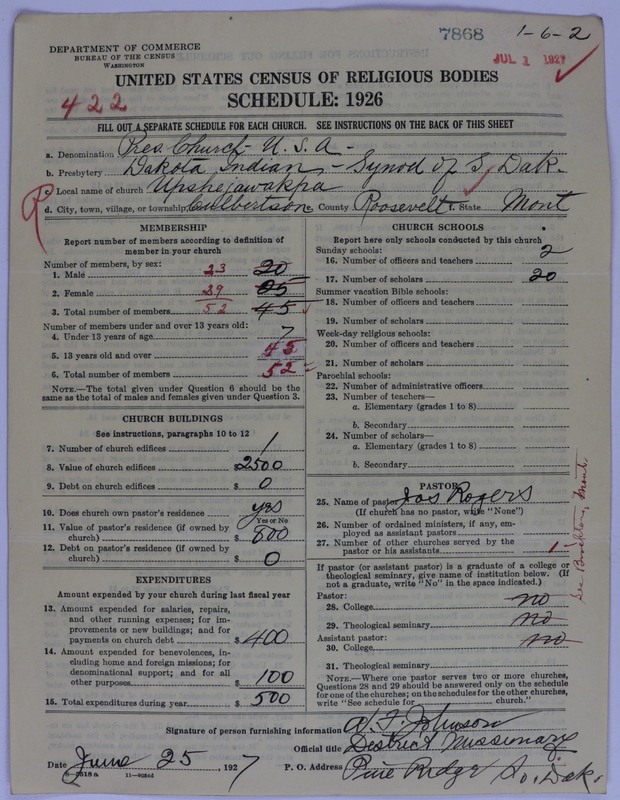 7868
1-6-2
JUL 1 1927
DEPARTMENT OF COMMERCE
BUREAU OF THE CENSUS
WASHINGTON
UNITED STATES CENSUS OF RELIGIOUS BODIES
SCHEDULE: 1926
422
FILL OUT A SEPARATE SCHEDULE FOR EACH CHURCH. SEE INSTRUCTIONS ON THE BACK OF THIS SHEET
a. Denomination Pres. Church - U.S.A -
b. Presbytery Dakota Indian - Synod of S. Dak.
c. Local name of church Upshejawakpa
d. City, town, village, or township Culbertson e. County Roosevelt f. State Mont
R
MEMBERSHIP
Report number of members according to definition of
member in your church
Number of members, by sex:
1. Male 23 20
2. Female 29 25
3. Total number of members 52 45
Number of members under and over 13 years old:
4. Under 13 years of age 7
5. 13 years old and over 45
6. Total number of members 52
NOTE.—The total given under Question 6 should be
same as the total of males and females given under Question 3.
CHURCH BUILDINGS
See instructions, paragraphs 10 to 12
7. Number of church edifices 1
8. Value of church edifices $2500
9. Debt on church edifices $ 0
10. Does church own pastor's residence yes
Yes or No
11. Value of pastor's residence (if owned by
church) $ 800
12. Debt on pastor's residence (if owned by
church) $ 0
EXPENDITURES
Amount expended by your church during last fiscal year
13. Amount expended for salaries, repairs,
and other running expenses; for im-
provements or new buildings; and for
payments on church debt $ 400
14. Amount expended for benevolences, in-
cluding home and foreign missions; for
denominational support; and for all
other purposes $ 100
15. Total expenditures during year $ 500
CHURCH SCHOOLS
Report here only schools conducted by this church
Sunday schools:
16. Number of officers and teachers 2
17. Number of scholars 20
Summer vacation Bible schools:
18. Number of officers and teachers
19. Number of scholars
Week-day religious schools:
20. Number of officers and teachers
21. Number of scholars
Parochial schools:
22. Number of administrative officers
23. Number of teachers—
a. Elementary (grades 1 to 8)
b. Secondary
24. Number of scholars—
a. Elementary (grades 1 to 8)
b. Secondary
PASTOR
25. Name of pastor Jas Rogers
(If church has no pastor, write "None")
26. Number of ordained ministers, if any, em-
ployed as assistant pastors
27. Number of other churches served by the
pastor or his assistants 1
See Brockton, Mont.
If pastor (or assistant pastor) is a graduate of a college or
theological seminary, give name of institution below. (If
not a graduate, write "No" in the space indicated.)
Pastor:
28. College no
29. Theological seminary no
Assistant pastor:
30. College no
31. Theological seminary
NOTE.—Where one pastor serves two or more churches,
Questions 28 and 29 should be answered only on the schedule
for one of the churches; on the schedules for the other churches,
write "See schedule for church."
Signature of person furnishing information W. F. Johnson
Official title District Missionary
Date June 25, 1927 P. O. Address Pine Ridge So. Dak.